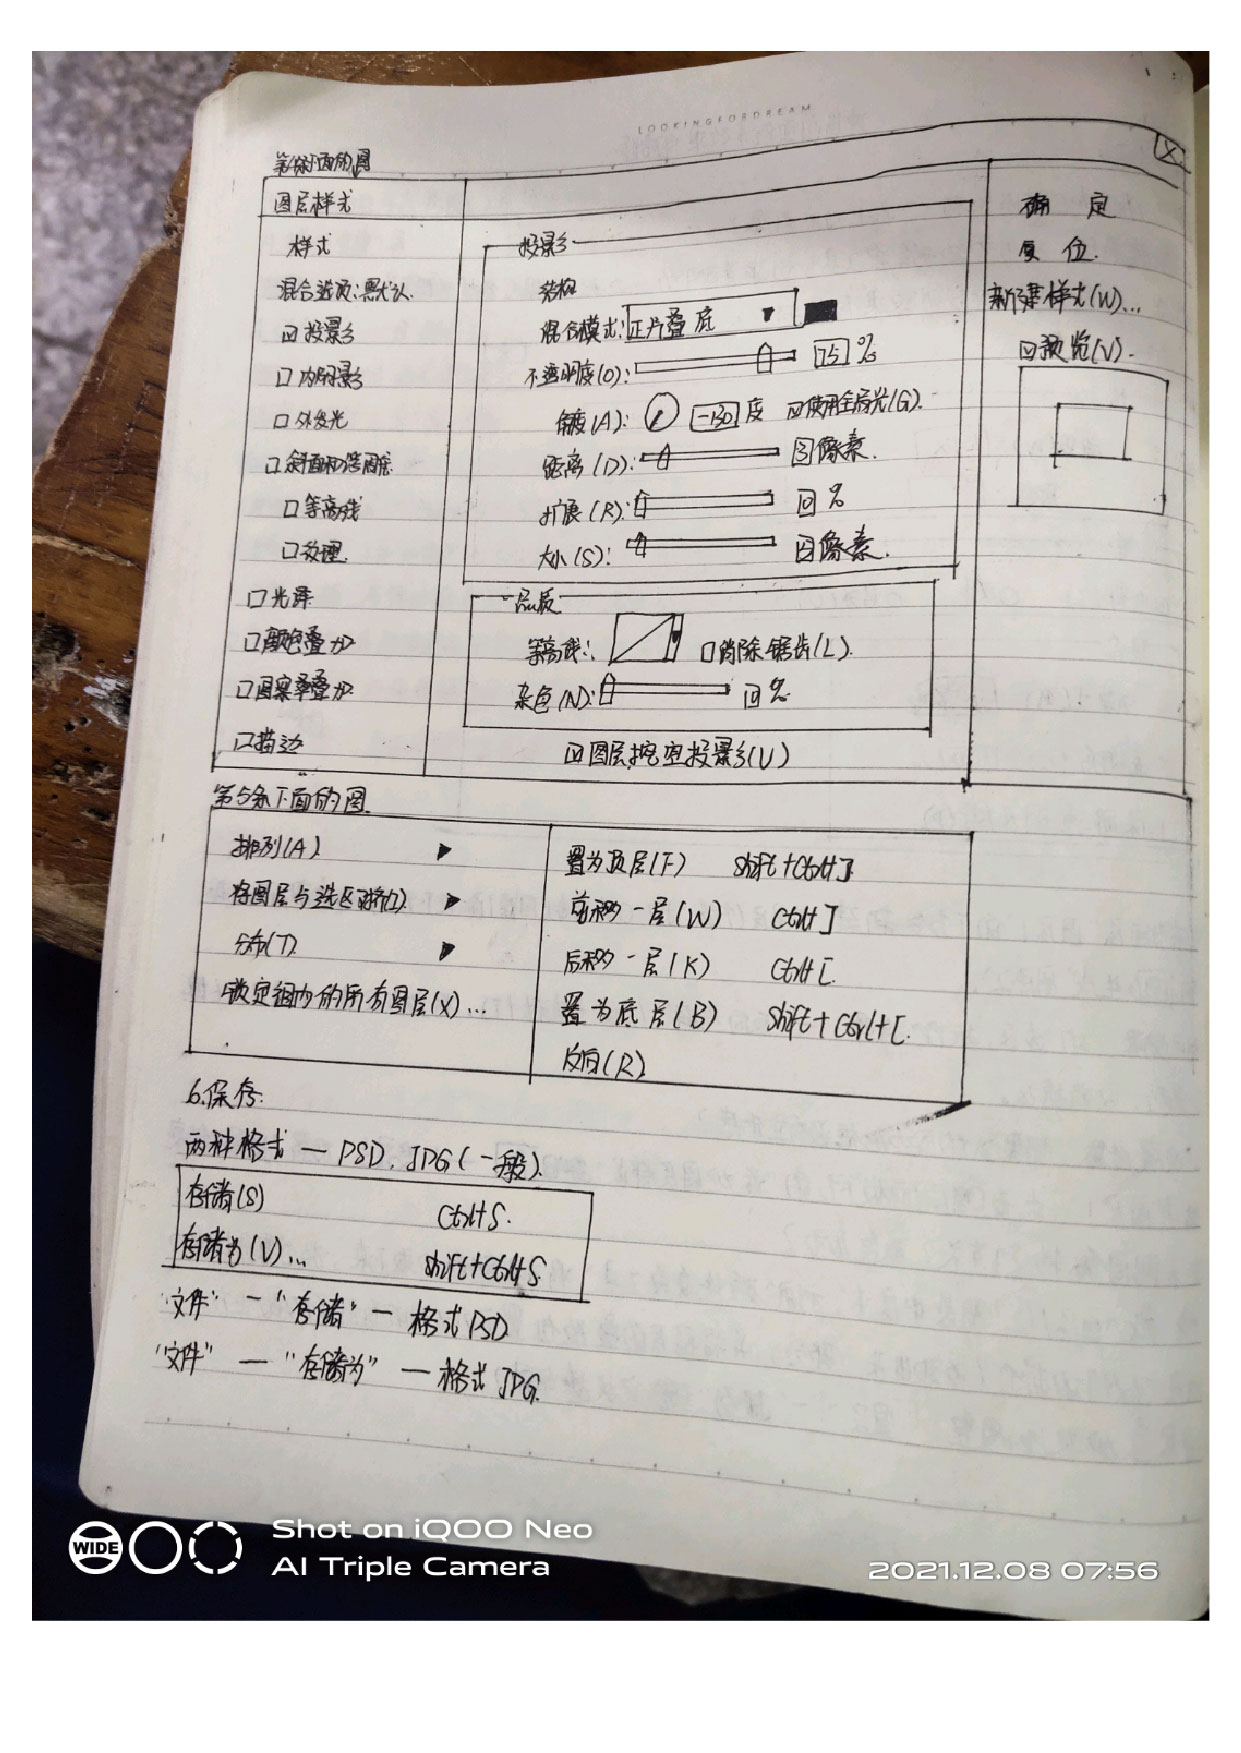 LOOKINGFORDREAM
下面的图
图层样式
样式
混合选项:默认
☑投影
□内阴影
□外发光
□斜面和浮雕
□等高线
□纹理
□光泽
□颜色叠加
□图案叠加
□描边
投影
结构
混合模式:正片叠底
不透明度(O): 75 %
角度(A): -130 度 ☑使用全局光(G).
距离(D): 像素.
扩展(R): 回 %
大小(S): 像素.
品质
等高线: □消除锯齿(L).
杂色(N): 回 %
☑图层挖空投影(U)
X
确定
复位.
新建样式(W)...
☑预览(V).
第5条下面的图
排列(A) ▶
将图层与选区对齐(I) ▶
分布(T) ▶
锁定组内的所有图层(X)...
置为顶层(F) Shift+Ctrl+]
前移一层(W) Ctrl+]
后移一层(K) Ctrl+[
置为底层(B) Shift+Ctrl+[.
反向(R)
6.保存:
两种格式 — PSD. JPG(一般).
存储(S) Ctrl+S.
存储为(V)... Shift+Ctrl+S
"文件" — "存储" — 格式PSD
"文件" — "存储为" — 格式JPG.
WIDE
Shot on iQOO Neo
AI Triple Camera
2021.12.08 07:56